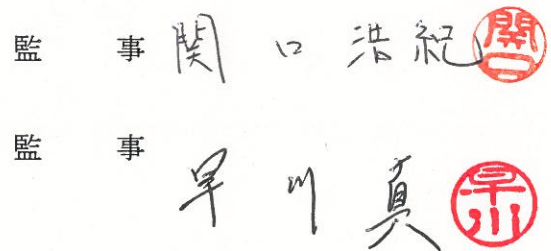 監 事 関口浩紀 関口
監 事 早川真 早川